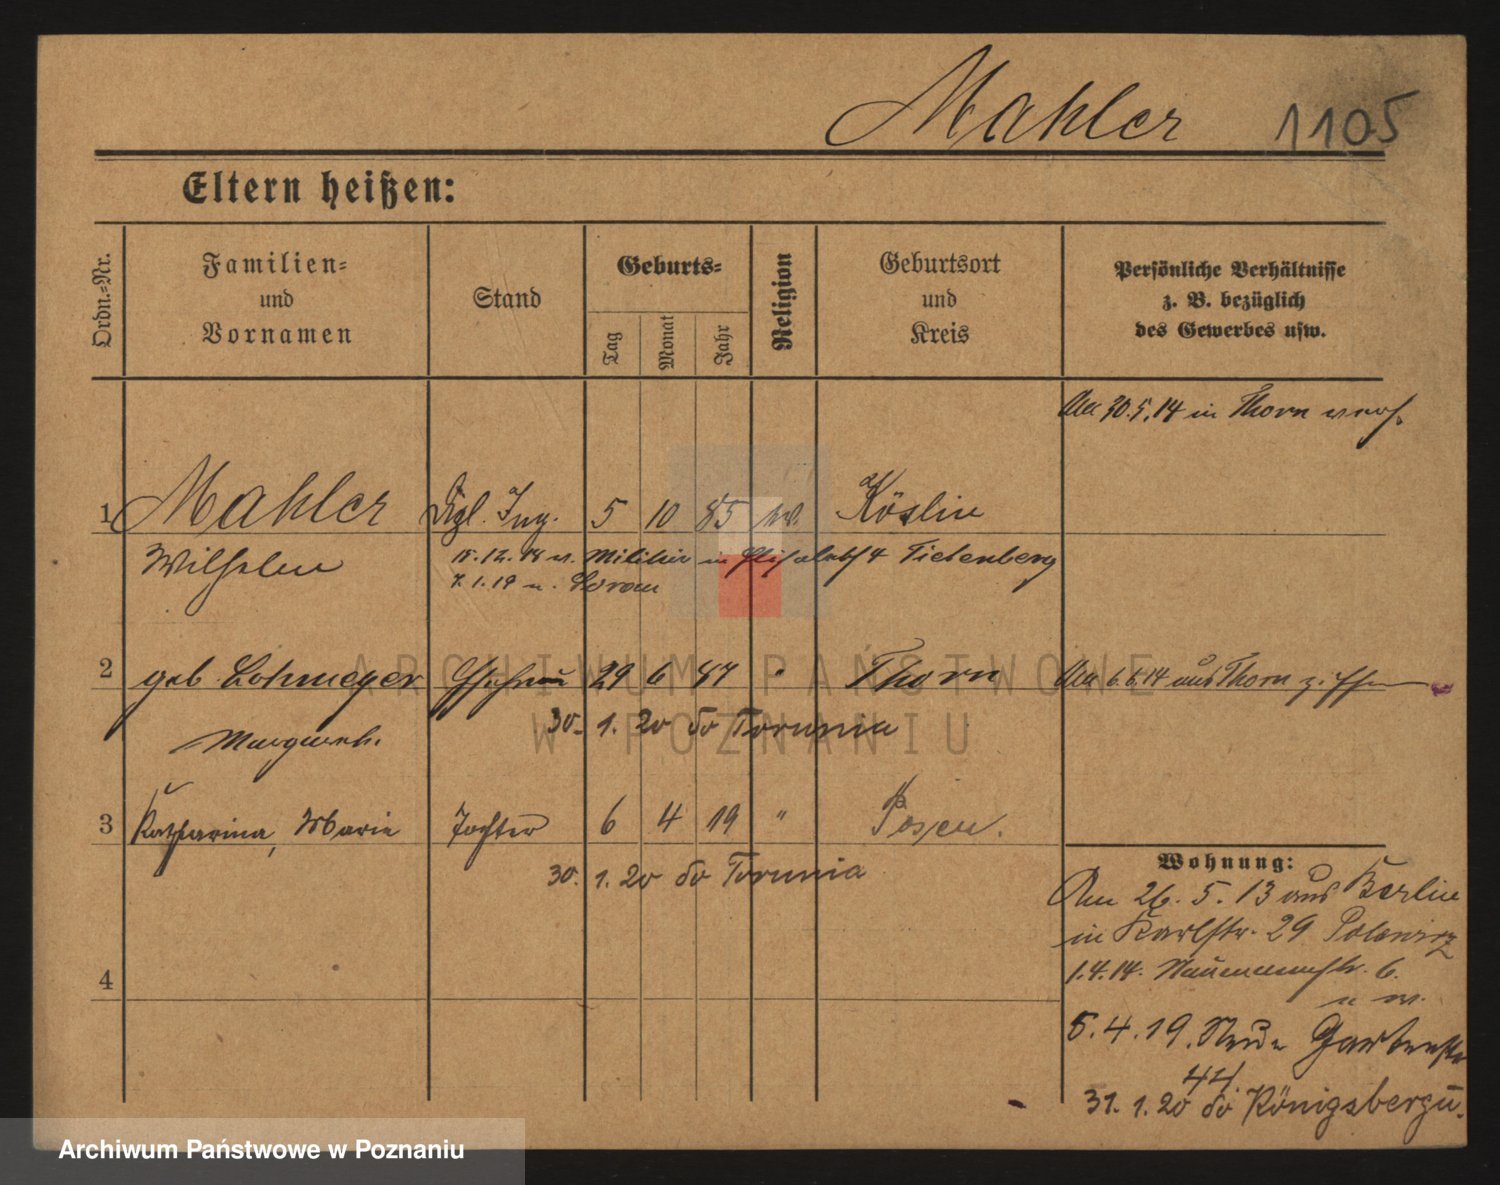 Mahler 1105
Eltern heißen:
Ordn.-Nr.
Familien-
und
Vornamen
Stand
Geburts-
Tag
Monat
Jahr
Religion
Geburtsort
und
Kreis
Persönliche Verhältnisse
z. B. bezüglich
des Gewerbes usw.
Am 30.5.14 in Thorn verh.
1 Mahler Dipl. Ing. 5 10 85 Köslin
Wilhelm 15.12.18 v. Militär in 4 Tietenberg
7.1.19 n. Sorau
2 geb Lohmeyer Ehefrau 29 6 87 " Thorn Am 6.6.14 aus Thorn
Margareth. 30. 1. 20 do Torunia
3 Katharina, Marie Tochter 6 4 19 " Posen.
30. 1. 20 do Torunia
Wohnung:
Am 26. 5. 13 aus Berlin
in Karlstr. 29
1.4.14. Naumannstr. 6.
5.4.19. Neue Gartenstr
44.
31. 1. 20 do
4
ARCHIWUM PAŃSTWOWE
W POZNANIU
Archiwum Państwowe w Poznaniu